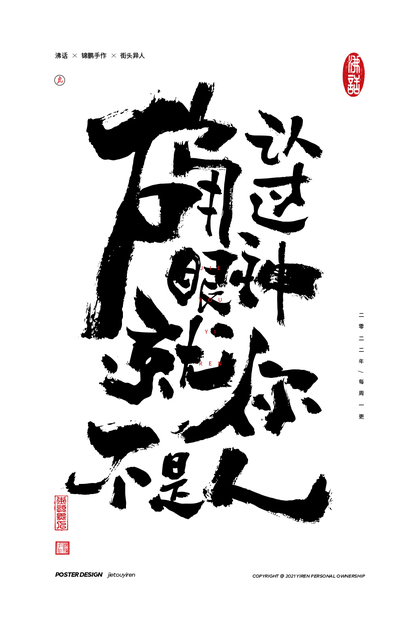 沸话 × 锦鹏手作 × 街头异人
确认过
眼神
就你
不是人
二零二二年/每周一更
POSTER DESIGN jietouyiren
COPYRIGHT @ 2021 YIREN PERSONAL OWNERSHIP